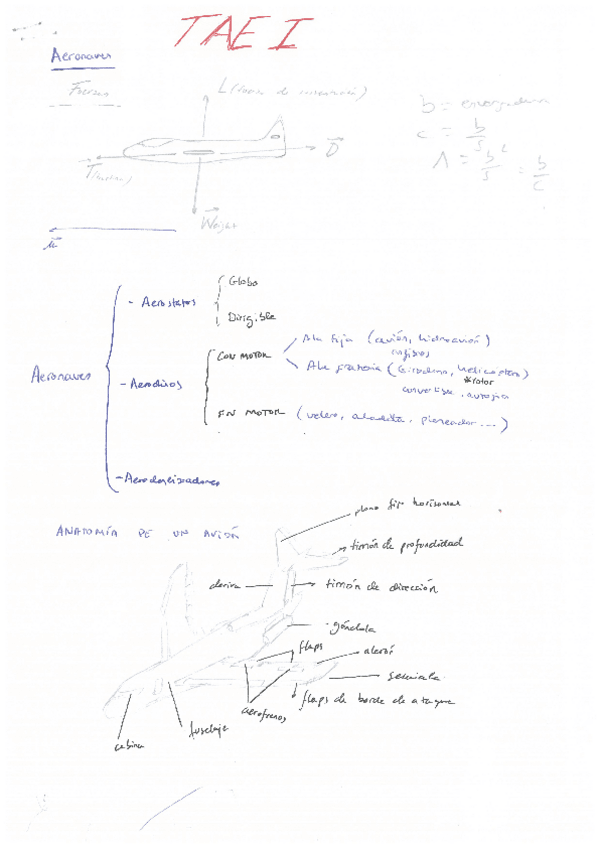 TAE I
Aeronaves
Fuerzas
L (fuerza de sustentación)
b = envergadura
c = b/S
Λ = b²/S = b/c
D
T
Weight
Globo
- Aerostatos
Dirigible
CON MOTOR
Ala fija (avión, hidroavión)
Aeronaves
- Aerodinos
Ala giratoria (Girodino, helicóptero)
*rotor
convertible, autogiro
SIN MOTOR (velero, aladelta, planeador...)
- Aerodeslizadores
ANATOMÍA DE UN AVIÓN
plano fijo horizontal
timón de profundidad
deriva
timón de dirección
góndola
flaps
alerón
semiala
flaps de borde de ataque
aerofrenos
fuselaje
cabina